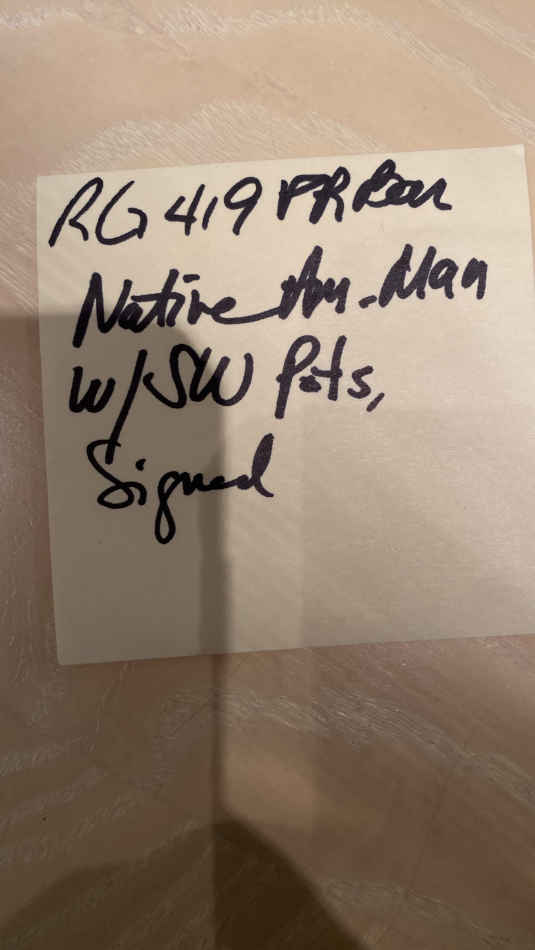 RG 419 PR Rear
Native Am. Man
w/SW Pots,
Signed